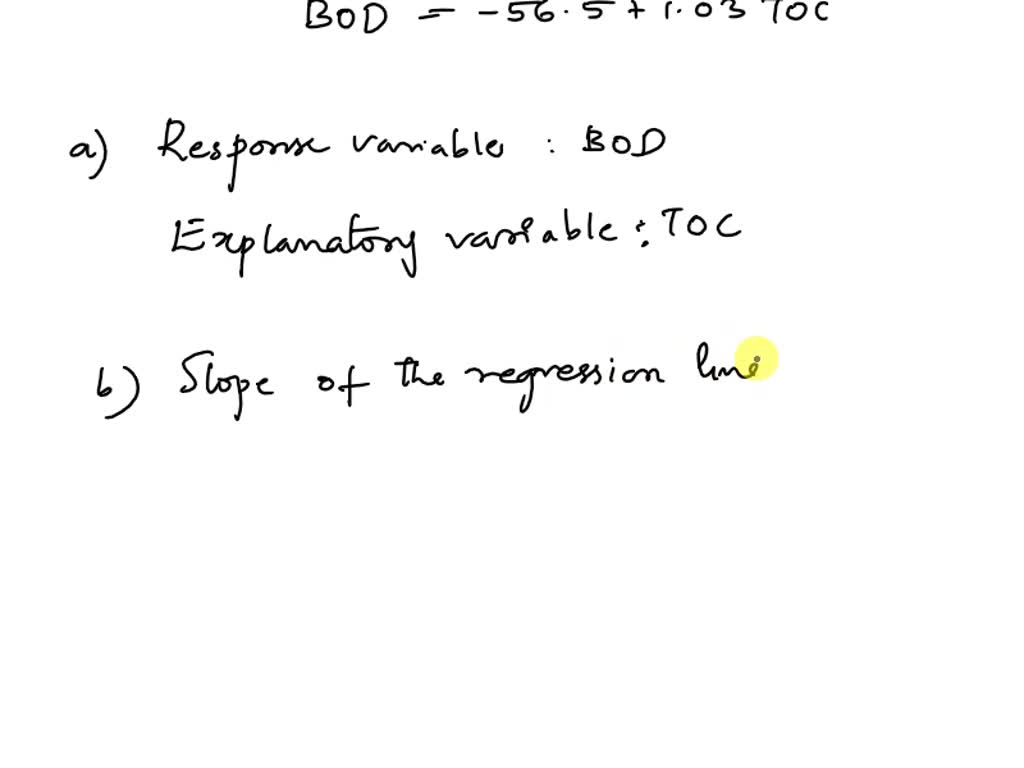 BOD = -56.5 + 1.03 TOC
a) Response variable : BOD
Explanatory variable : TOC
b) Slope of the regression line